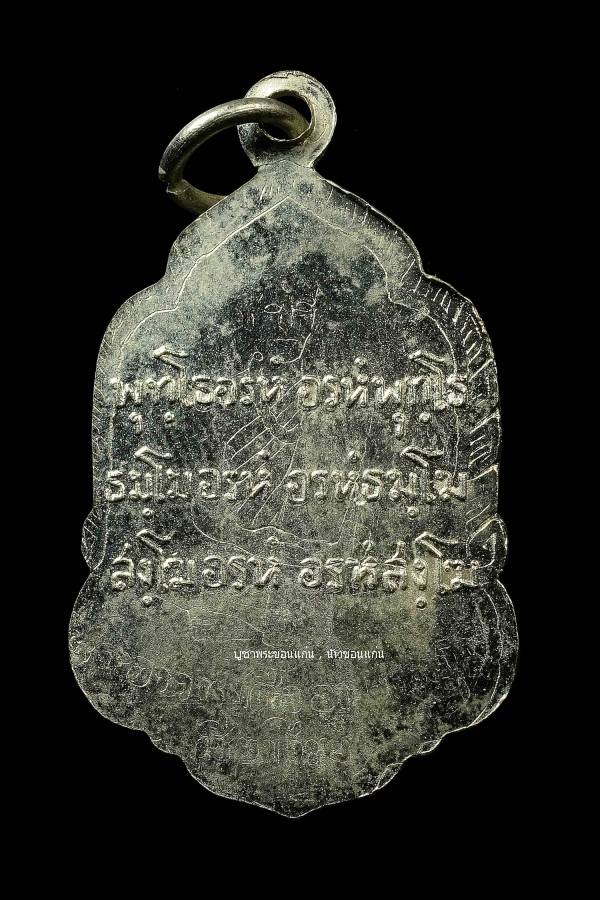 พุทฺโธอรหํ อรหํพุทฺโธ
ธมฺโมอรหํ อรหํธมฺโม
สงฺโฆอรหํ อรหํสงฺโฆ
บูชาพระขอนแก่น , นาวขอนแก่น